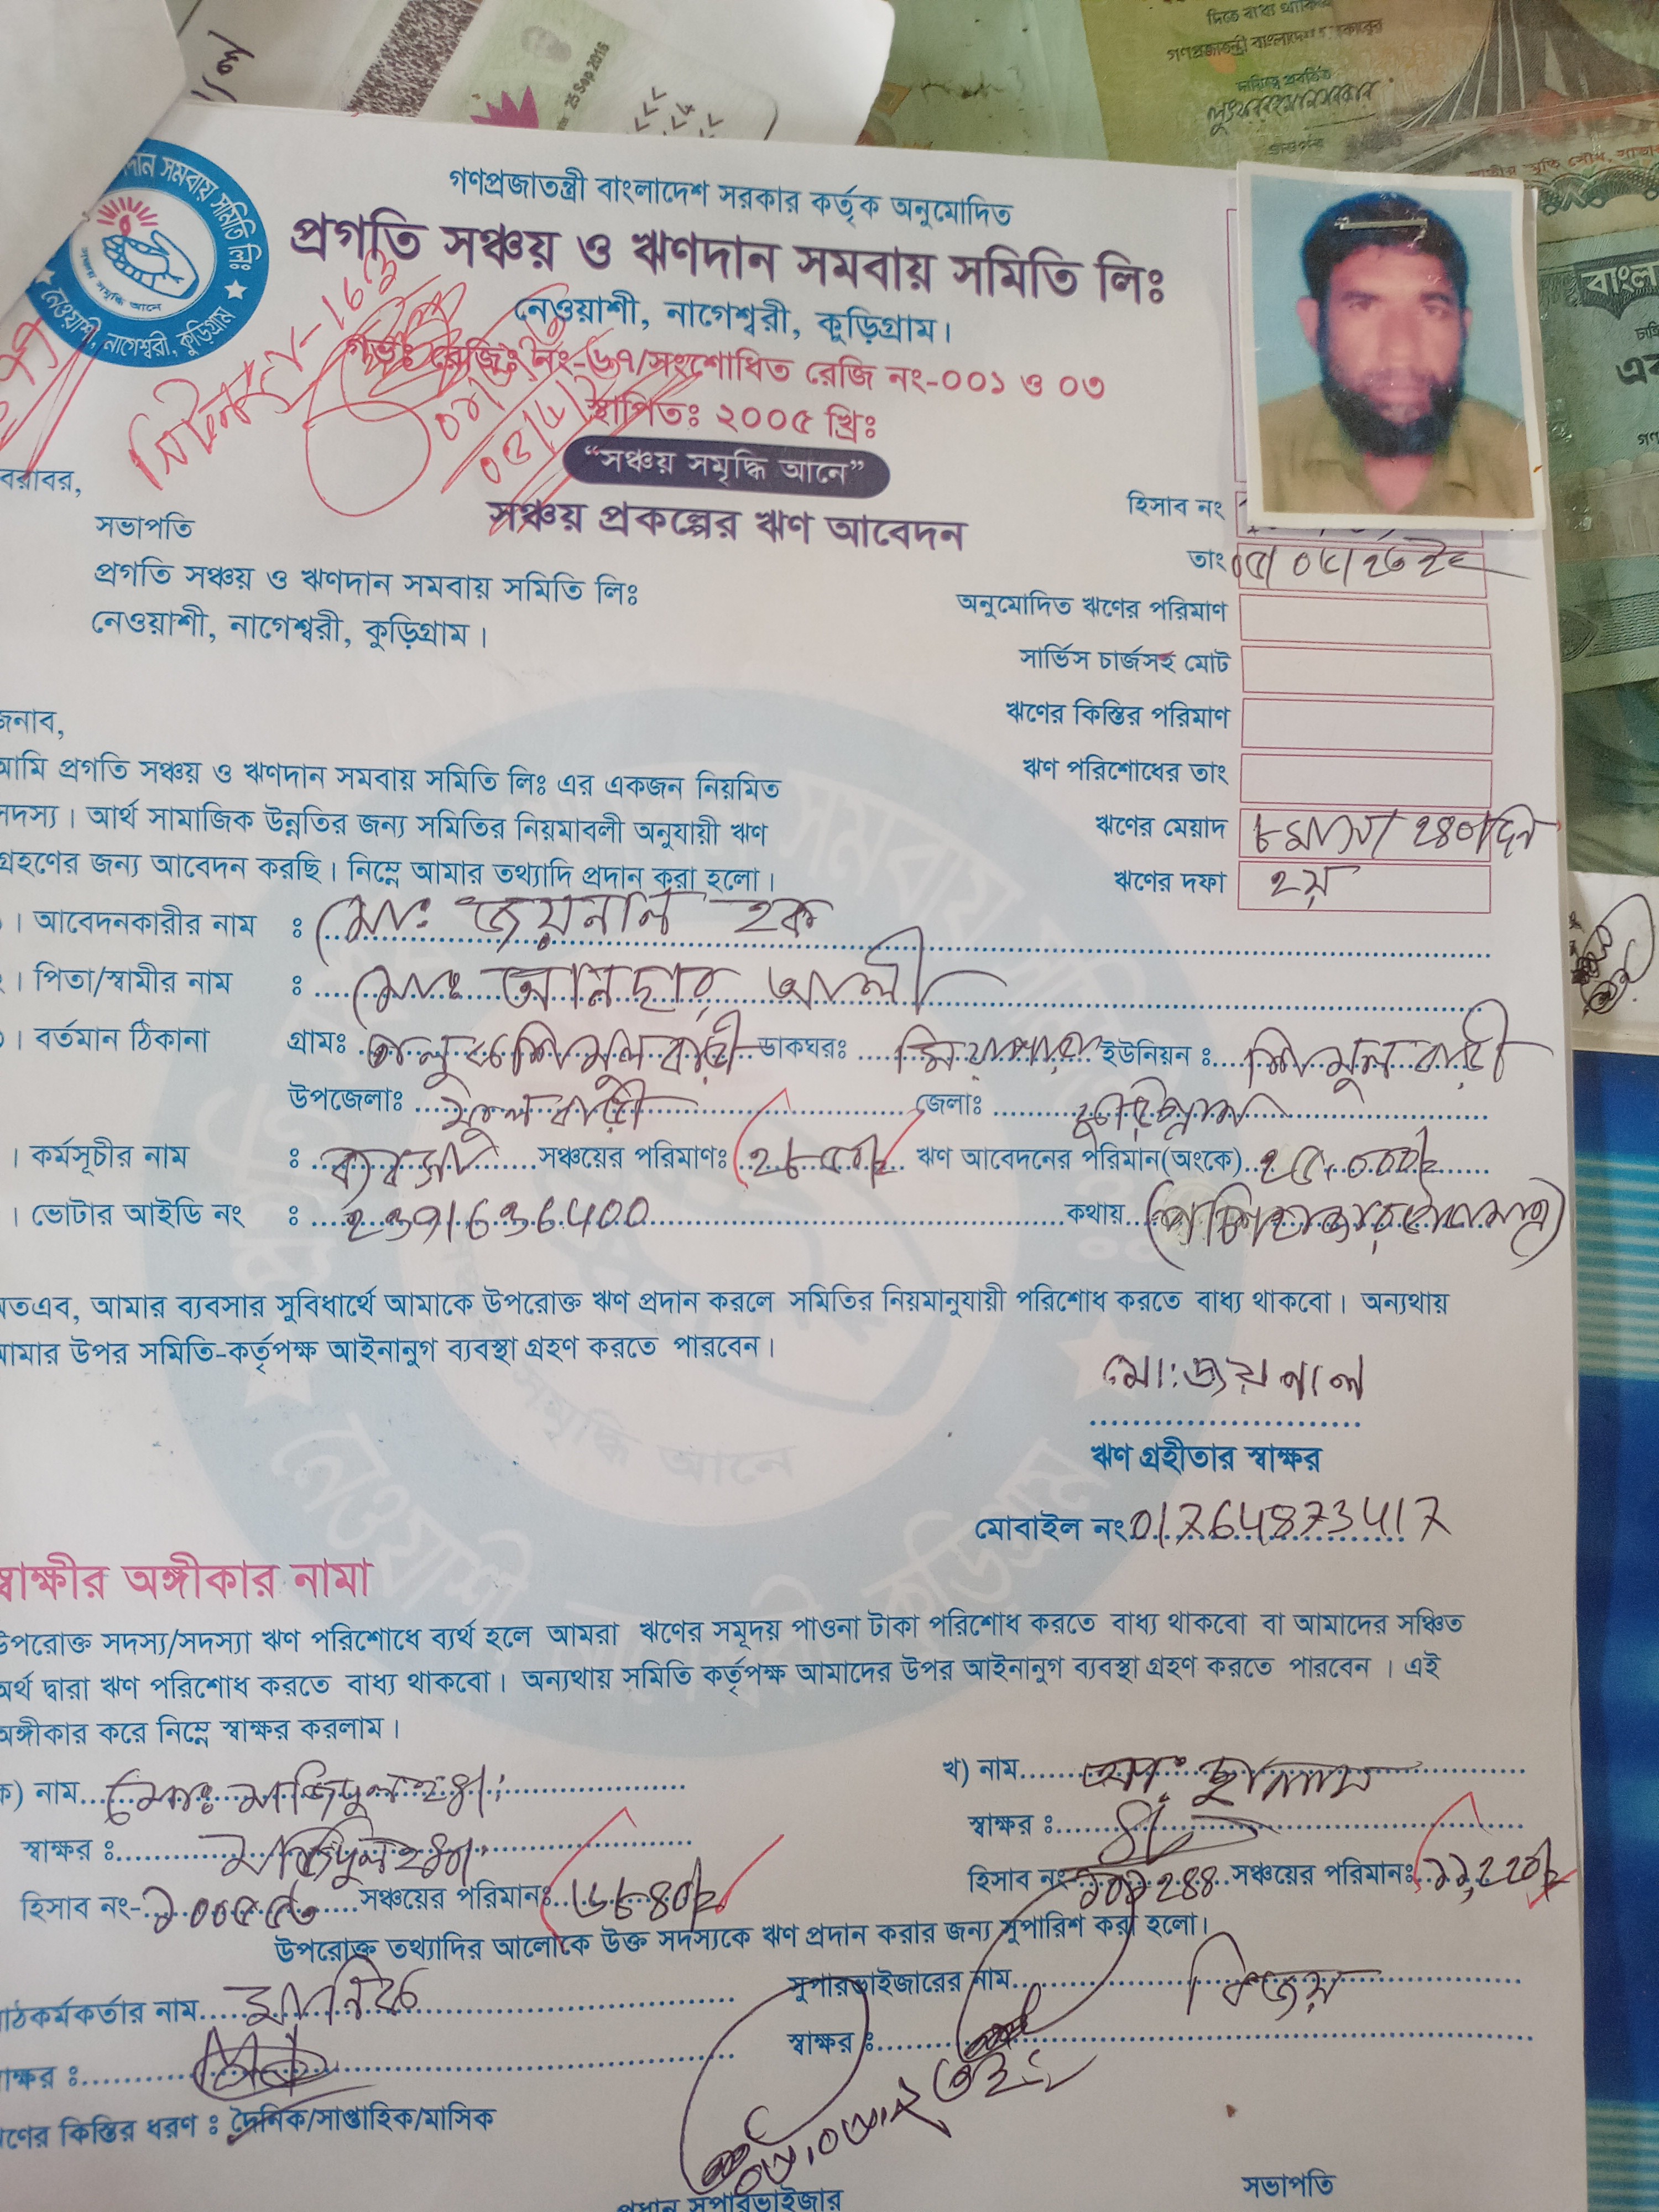 25 Sep 2016
গণপ্রজাতন্ত্রী বাংলাদেশ
বাংলা
দান সমবায় সমিতি লিঃ
সঞ্চয় সমৃদ্ধি আনে
নেওয়াশী, নাগেশ্বরী, কুড়িগ্রাম
গণপ্রজাতন্ত্রী বাংলাদেশ সরকার কর্তৃক অনুমোদিত
প্রগতি সঞ্চয় ও ঋণদান সমবায় সমিতি লিঃ
নেওয়াশী, নাগেশ্বরী, কুড়িগ্রাম।
গভঃ রেজিঃ নং-৬৭/সংশোধিত রেজি নং-০০১ ও ০৩
স্থাপিতঃ ২০০৫ খ্রিঃ
“সঞ্চয় সমৃদ্ধি আনে”
সঞ্চয় প্রকল্পের ঋণ আবেদন
বরাবর,
সভাপতি
প্রগতি সঞ্চয় ও ঋণদান সমবায় সমিতি লিঃ
নেওয়াশী, নাগেশ্বরী, কুড়িগ্রাম।
হিসাব নং
তাং
অনুমোদিত ঋণের পরিমাণ
সার্ভিস চার্জসহ মোট
ঋণের কিস্তির পরিমাণ
ঋণ পরিশোধের তাং
ঋণের মেয়াদ ৮ মাস/ ২৪০/দিন
ঋণের দফা ২য়
জনাব,
আমি প্রগতি সঞ্চয় ও ঋণদান সমবায় সমিতি লিঃ এর একজন নিয়মিত
সদস্য। আর্থ সামাজিক উন্নতির জন্য সমিতির নিয়মাবলী অনুযায়ী ঋণ
গ্রহণের জন্য আবেদন করছি। নিম্নে আমার তথ্যাদি প্রদান করা হলো।
। আবেদনকারীর নাম ঃ মোঃ জয়নাল হক
। পিতা/স্বামীর নাম ঃ মোঃ আনছার আলী
। বর্তমান ঠিকানা গ্রামঃ ডাকঘরঃ মিয়াপাড়া ইউনিয়ন ঃ শিমুলবাড়ী
উপজেলাঃ ফুলবাড়ী জেলাঃ কুড়িগ্রাম
। কর্মসূচীর নাম ঃ ব্যবসা সঞ্চয়ের পরিমাণঃ ঋণ আবেদনের পরিমান(অংকে) ২৫,০০০/=
। ভোটার আইডি নং ঃ কথায় (পঁচিশ হাজার টাকা মাত্র)
অতএব, আমার ব্যবসার সুবিধার্থে আমাকে উপরোক্ত ঋণ প্রদান করলে সমিতির নিয়মানুযায়ী পরিশোধ করতে বাধ্য থাকবো। অন্যথায়
আমার উপর সমিতি-কর্তৃপক্ষ আইনানুগ ব্যবস্থা গ্রহণ করতে পারবেন।
মো:জয়নাল
ঋণ গ্রহীতার স্বাক্ষর
মোবাইল নং 01764873417
স্বাক্ষীর অঙ্গীকার নামা
উপরোক্ত সদস্য/সদস্যা ঋণ পরিশোধে ব্যর্থ হলে আমরা ঋণের সমূদয় পাওনা টাকা পরিশোধ করতে বাধ্য থাকবো বা আমাদের সঞ্চিত
অর্থ দ্বারা ঋণ পরিশোধ করতে বাধ্য থাকবো। অন্যথায় সমিতি কর্তৃপক্ষ আমাদের উপর আইনানুগ ব্যবস্থা গ্রহণ করতে পারবেন। এই
অঙ্গীকার করে নিম্নে স্বাক্ষর করলাম।
ক) নাম মোঃ
খ) নাম
স্বাক্ষর ঃ
স্বাক্ষর ঃ
হিসাব নং- সঞ্চয়ের পরিমানঃ
হিসাব নং- ১০১২৪৪ সঞ্চয়ের পরিমানঃ ১১,২২০/=
উপরোক্ত তথ্যাদির আলোকে উক্ত সদস্যকে ঋণ প্রদান করার জন্য সুপারিশ করা হলো।
মাঠকর্মকর্তার নাম
সুপারভাইজারের নাম বিজয়
স্বাক্ষর ঃ
স্বাক্ষর ঃ
ঋণের কিস্তির ধরণ ঃ দৈনিক/সাপ্তাহিক/মাসিক
প্রধান সুপারভাইজার
সভাপতি